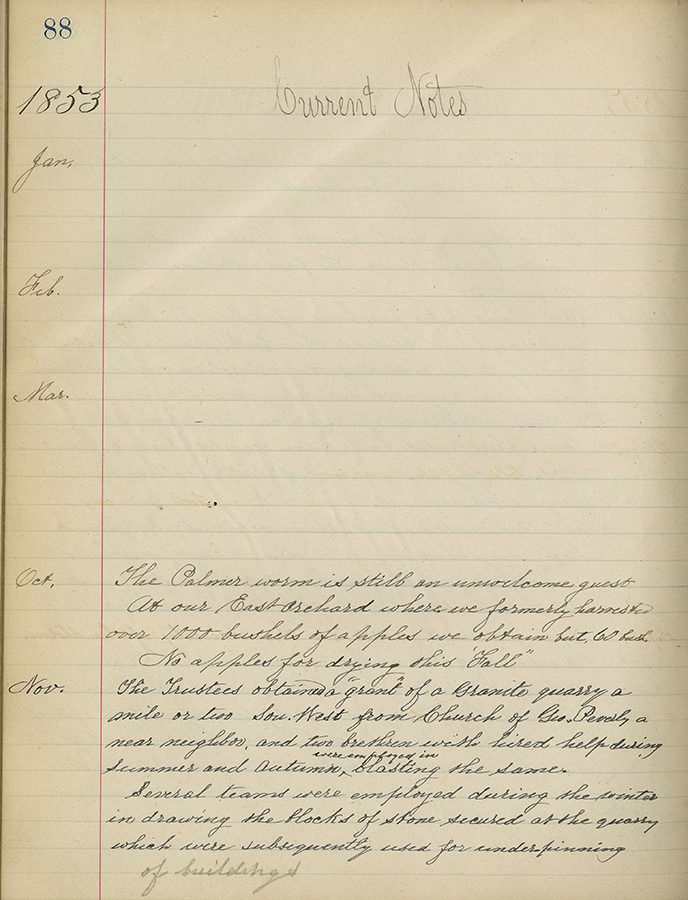 88
1853 Current Notes
Jan.
Feb.
Mar.
Oct. The Palmer worm is still an unwelcome guest
At our East Orchard where we formerly harvested
over 1000 bushels of apples we obtain but, 60 bush.
No apples for drying this "Fall"
Nov. The Trustees obtained a "grant" of a Granite quarry a
mile or two Sou. West from Church of Geo. Peverly, a
near neighbor, and two brethren with hired help during
were employed in
Summer and Autumn, blasting the same.
Several teams were employed during the winter
in drawing the blocks of stone secured at the quarry
which were subsequently used for under-pinning
of buildings